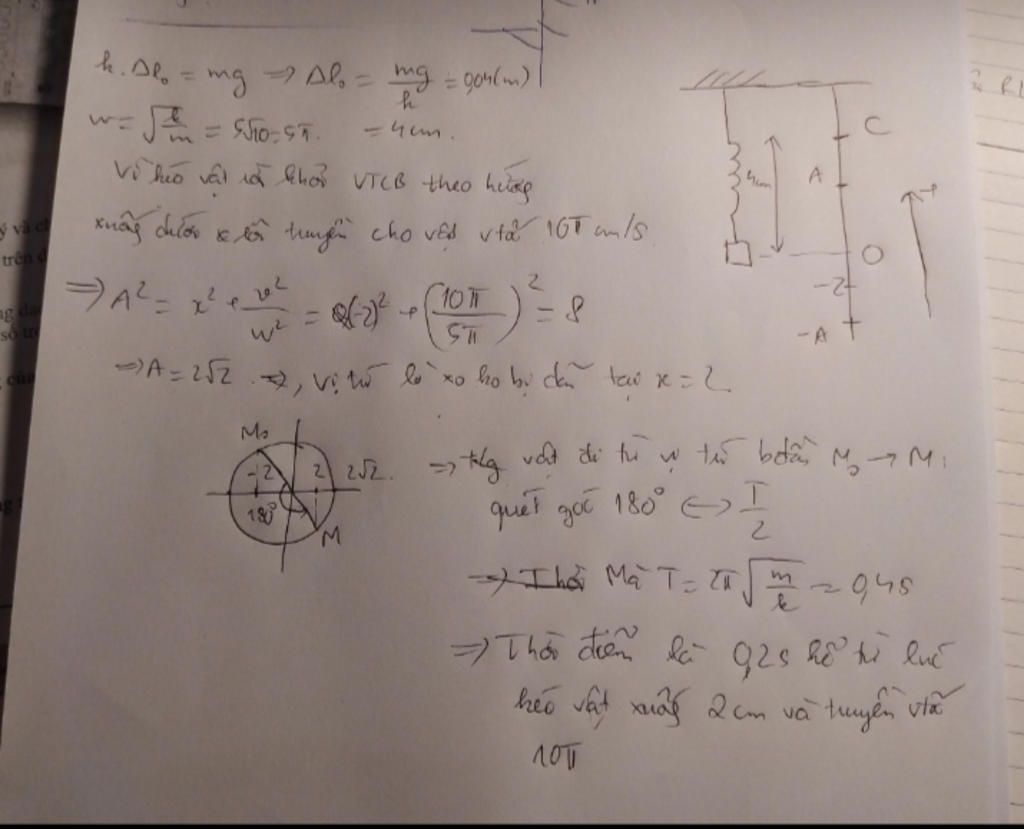 k.Δl₀ = mg ⇒ Δl₀ = mg/k = 0,04(m)
w = √(k/m) = 5√10 = 5π. = 4cm.
Vì kéo vật ra khỏi VTCB theo hướng
xuống dưới rồi truyền cho vật vtốc 10π cm/s
⇒ A² = x² + v²/w² = (-2)² + (10π/5π)² = 8
⇒ A = 2√2 ⇒, vị trí lò xo ko bị dãn tại x = 2
C
4cm
A
+
O
-2
-A
M₀
-2
2
2√2.
180°
M
⇒ vật đi từ vị trí bđầu M₀ → M
quét góc 180° ↔ T/2
Mà T = 2π√(m/k) = 0,4s
⇒ Thời điểm là 0,2s kể từ lúc
kéo vật xuống 2cm và truyền vtốc
10π
ý và
trên đ
số